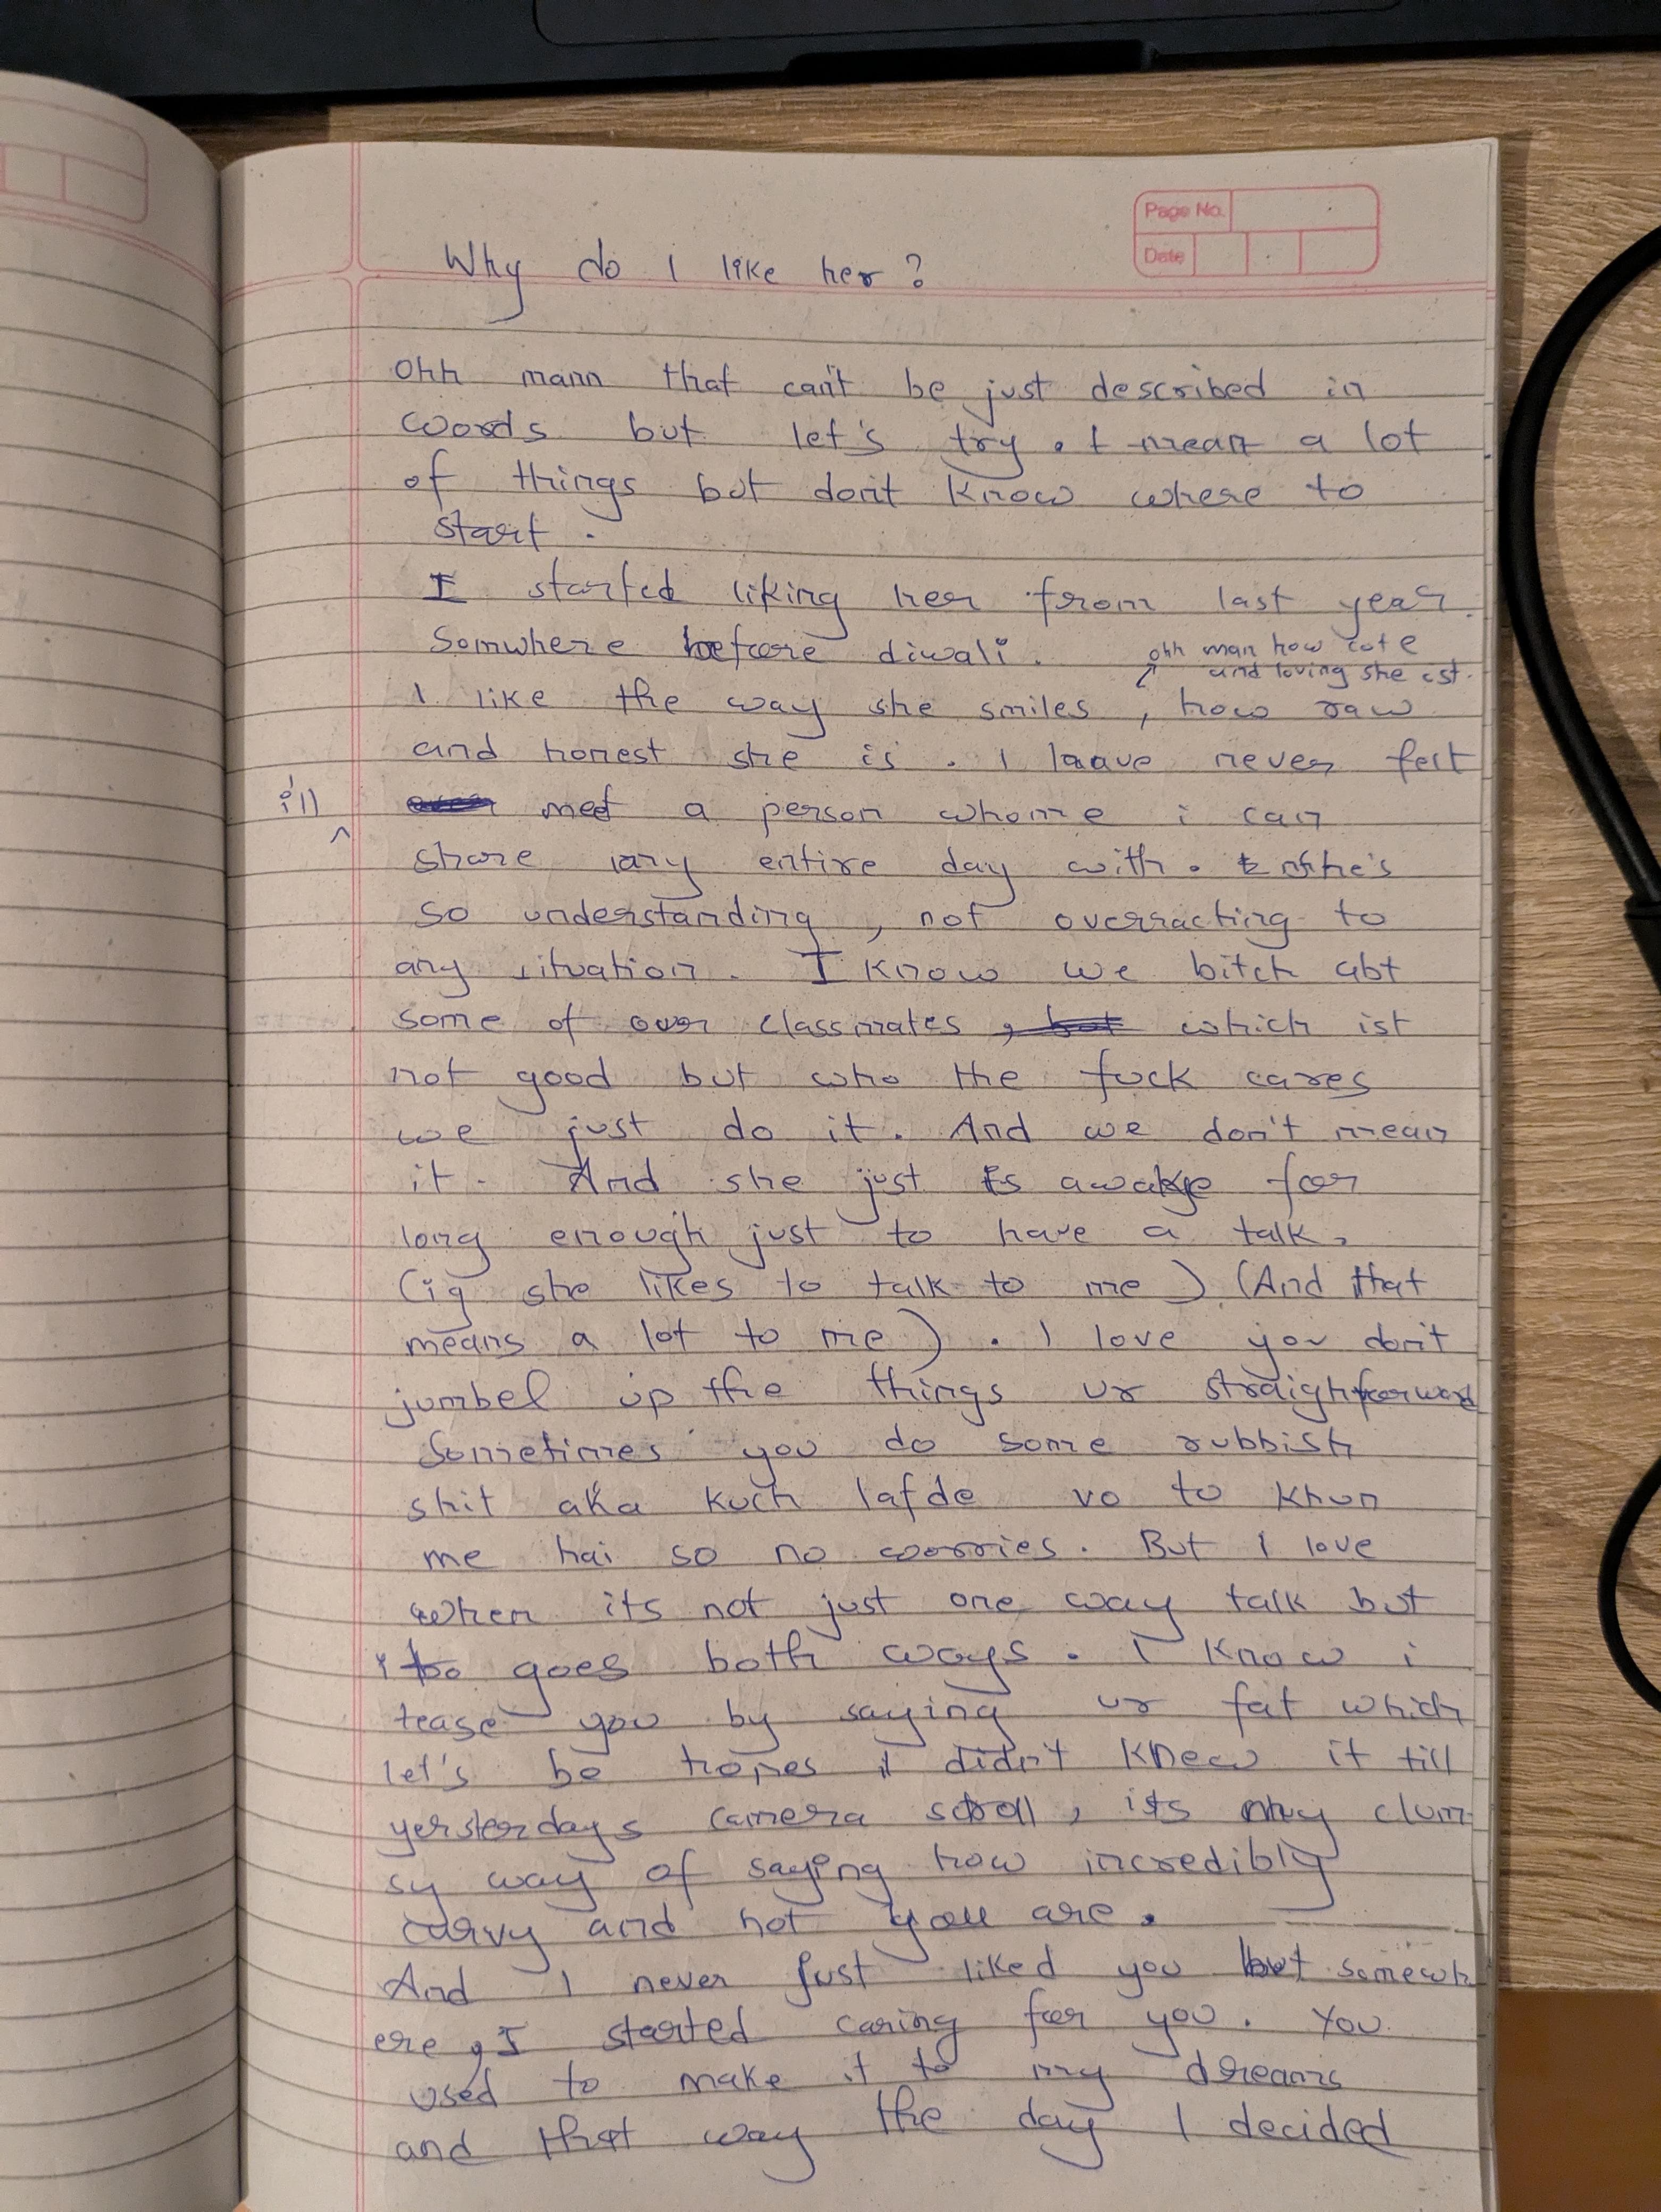 Page No.
Date
Why do I like her?
Ohh mann that can't be just described in
words but let's try. I mean a lot
of things but don't know where to
start.
I started liking her from last year.
Somwhere before diwali.
ohh man how cute
and loving she ist.
I like the way she smiles, how raw
and honest she is. I have never felt
till
met a person whome i can
share my entire day with. she's
so understanding, not overracting to
any situation. I know we bitch abt
some of our classmates, but which ist
not good but who the fuck cares
we just do it. And we don't mean
it. And she just is awake for
long enough just to have a talk.
(ig she likes to talk to me) (And that
means a lot to me). I love you don't
jumbel up the things ur straighforward
Sometimes you do some rubbish
shit aka kuch lafde vo to khun
me hai so no worries. But I love
when its not just one way talk but
goes both ways. I know i
tease you by saying ur fat which
let's be hones i didn't knew it till
yersterdays camera scroll, its my clum
sy way of saying how incredibly
curvy and hot you are.
And I never just liked you but somewh
ere, I started caring for you. You
used to make it to my dreams
and that way the day I decided